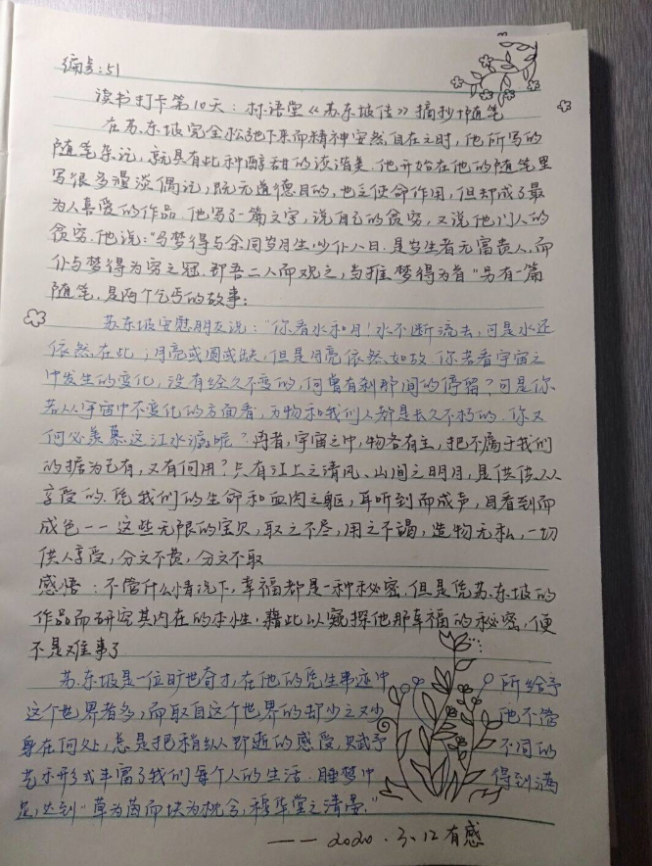 编号:51
读书打卡第10天:林语堂《苏东坡传》摘抄+随笔
在苏东坡完全松弛下来而精神安然自在之时,他所写的
随笔杂记,就具有此种醇甜的诙谐美.他开始在他的随笔里
写很多漫淡偶记,既无道德目的,也乏使命作用,但却成了最
为人喜爱的作品.他写了一篇文字,说自己的贫穷,又说他门人的
贫穷.他说:"马梦得与余同岁月生,少仆八日.是岁生者无富贵人,而
仆与梦得为穷之冠.即吾二人而观之,当推梦得为首"另有一篇
随笔,是两个乞丐的故事:
苏东坡安慰朋友说:"你看水和月!水不断流去,可是水还
依然在此;月亮或圆或缺,但是月亮依然如故.你若看宇宙之
中发生的变化,没有经久不变的,何曾有刹那间的停留?可是你
若从宇宙中不变化的方面看,万物和我们人都是长久不朽的.你又
何必羡慕这江水流呢?再者,宇宙之中,物各有主,把不属于我们
的据为己有,又有何用?只有江上之清风、山间之明月,是供给人人
享受的.凭我们的生命和血肉之躯,耳听到而成声,目看到而
成色——这些无限的宝贝,取之不尽,用之不竭,造物无私,一切
供人享受,分文不费,分文不取
感悟:不管什么情况下,幸福都是一种秘密.但是凭苏东坡的
作品而研究其内在的本性,藉此以窥探他那幸福的秘密,便
不是难事了
苏东坡是一位旷世奇才,在他的凭生事迹中 所给予
这个世界者多,而取自这个世界的却少之又少 他不管
身在何处,总是把稍纵即逝的感受,赋予 不同的
艺术形式丰富了我们每个人的生活.睡梦中 得到满
足,达到"草为茵而块为枕兮,穆华堂之清晏."
——2020.3.12有感